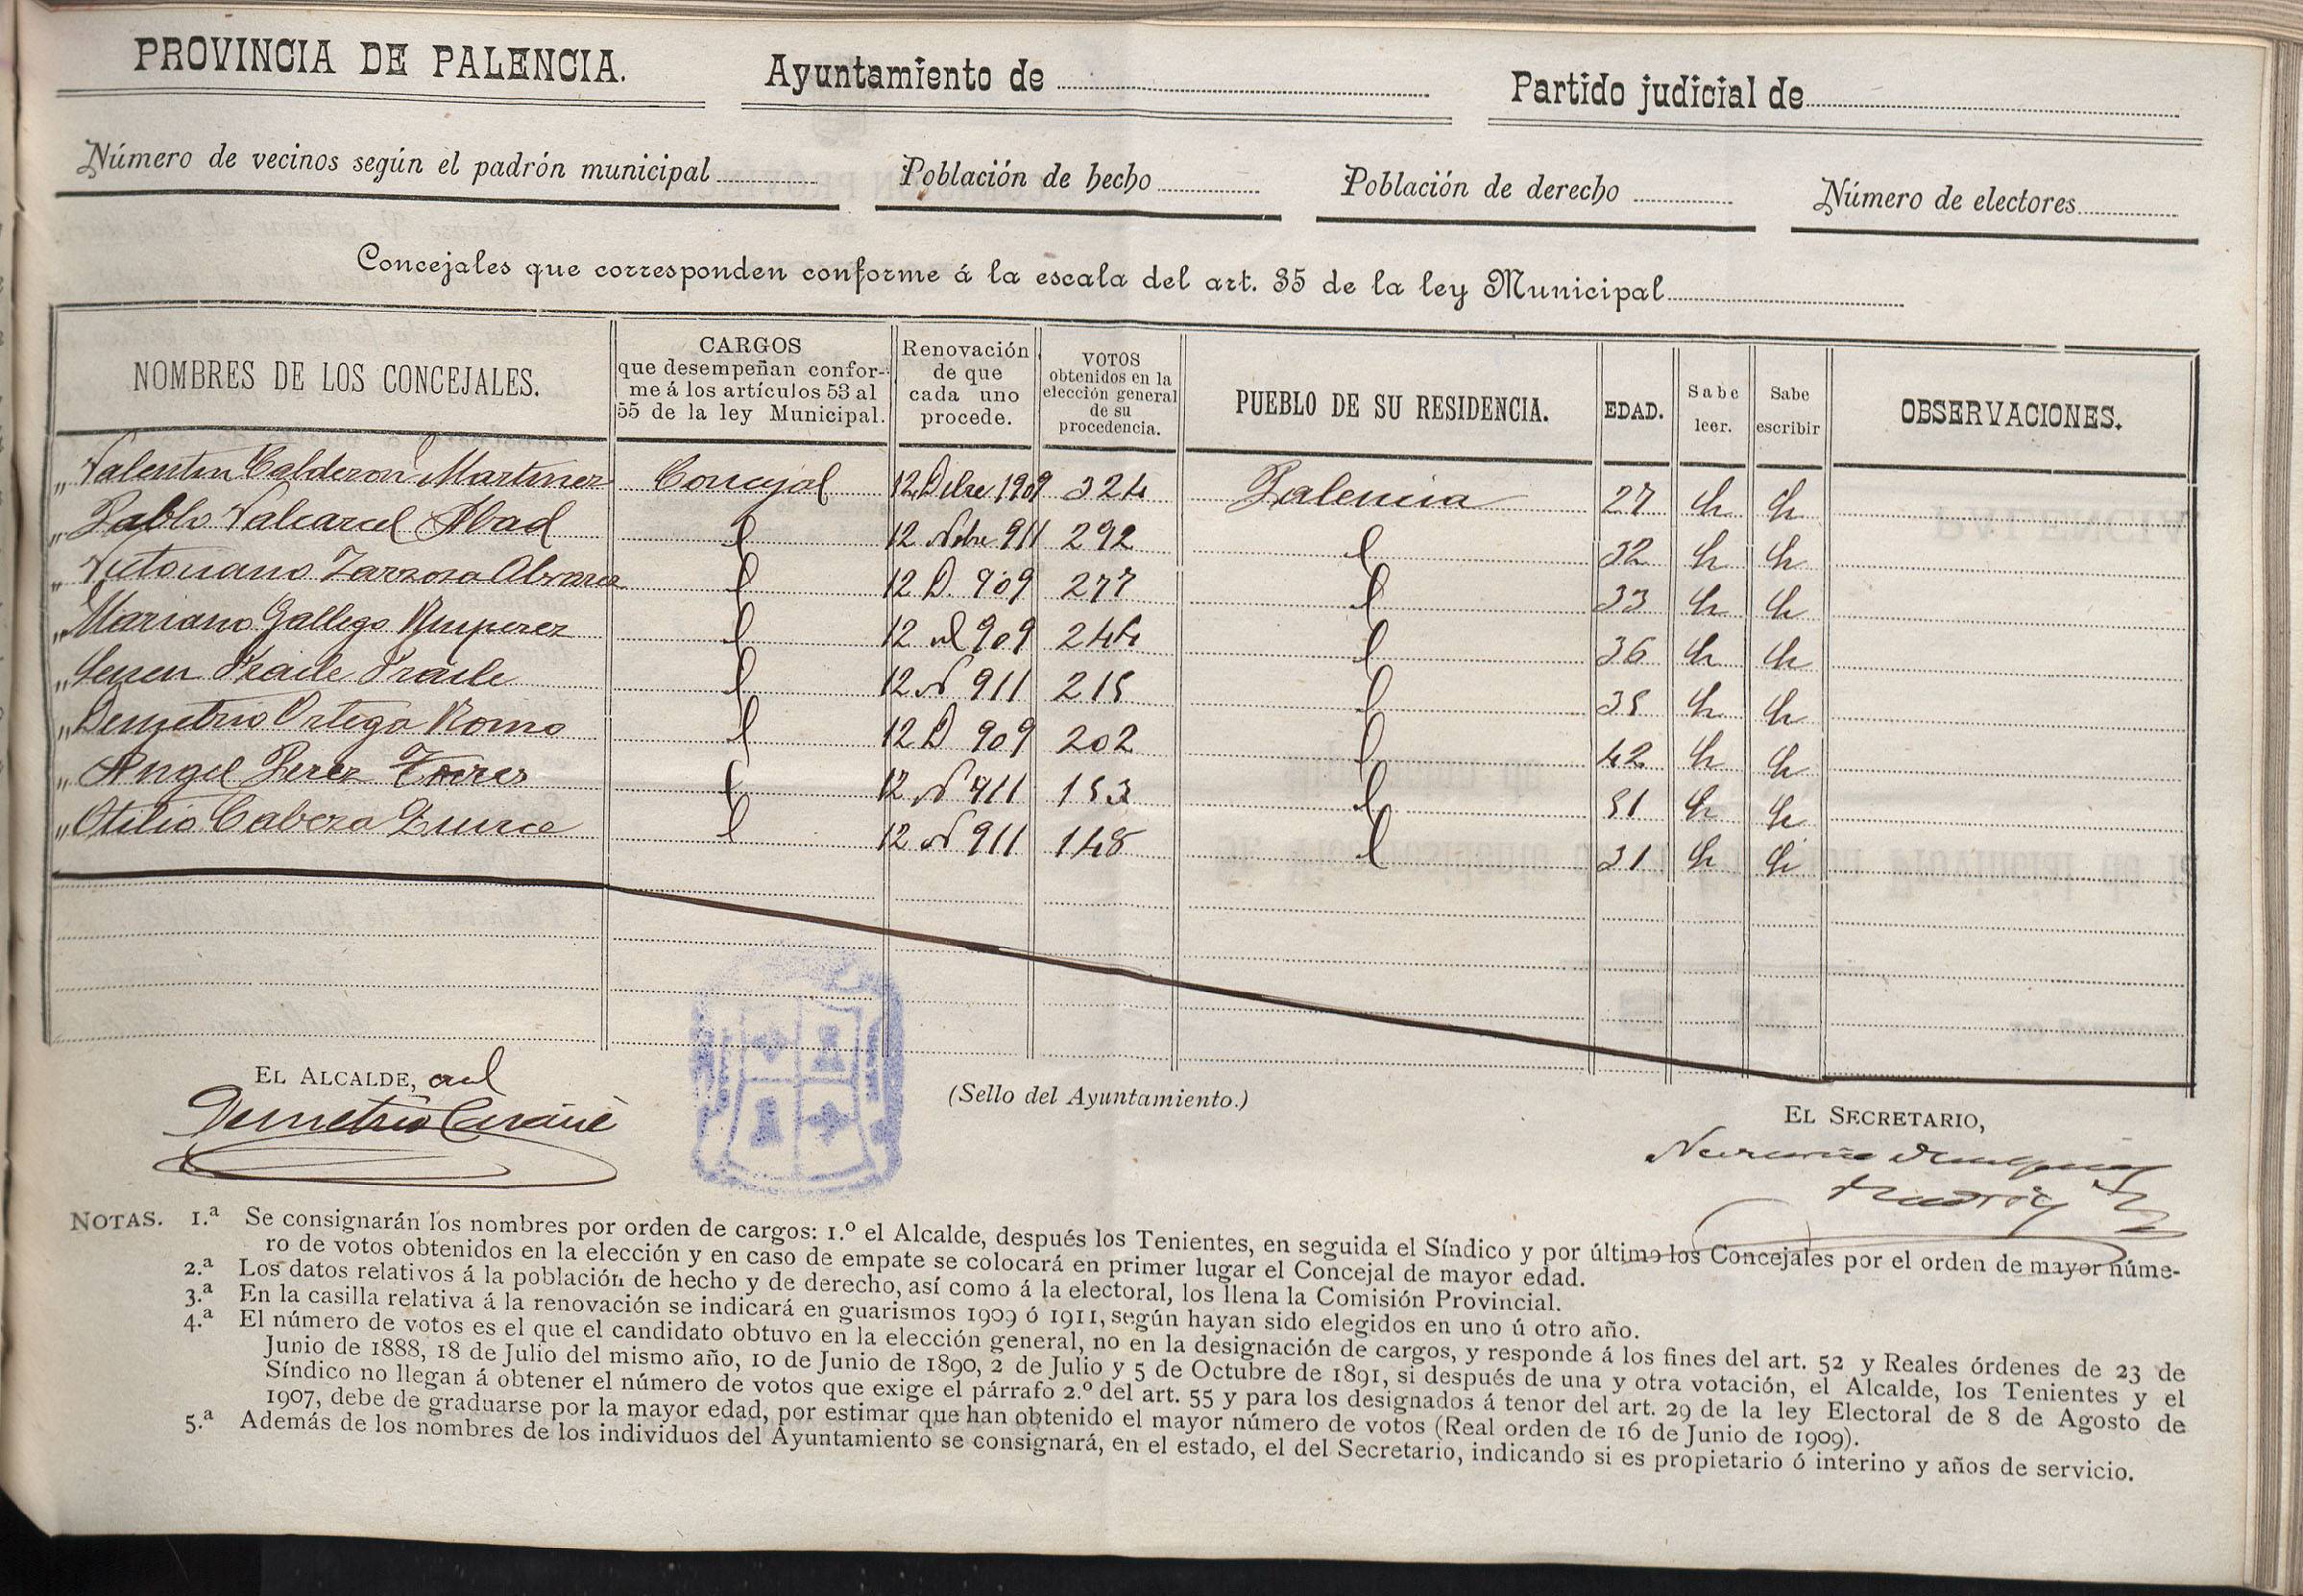 PROVINCIA DE PALENCIA. Ayuntamiento de Partido judicial de
Número de vecinos según el padrón municipal Población de hecho Población de derecho Número de electores
Concejales que corresponden conforme á la escala del art. 35 de la ley Municipal
NOMBRES DE LOS CONCEJALES.
CARGOS
que desempeñan confor-
me á los artículos 53 al
55 de la ley Municipal.
Renovación
de que
cada uno
procede.
VOTOS
obtenidos en la
elección general
de su
procedencia.
PUEBLO DE SU RESIDENCIA.
EDAD.
Sabe
leer.
Sabe
escribir
OBSERVACIONES.
„ Valentin Calderon Martinez Concejal 12 Dbre 1909 324 Palencia 27
„ Pablo Valcarcel Abad 12 Nbre 911 292 32
„ Victoriano Zarzosa Alvarez 12 D. 909 277 33
„ Mariano Gallego Ruiperez 12 id 909 244 36
„ Senen Fraile Fraile 12 N 911 215 35
„ Demetrio Ortega Romo 12 D 909 202 42
„ Angel Perez Torres 12 N 911 153 51
„ Otilio Cabeza 12 N 911 148 31
EL ALCALDE, acl
Demetrio
(Sello del Ayuntamiento.)
EL SECRETARIO,
NOTAS. 1.ª Se consignarán los nombres por orden de cargos: 1.º el Alcalde, después los Tenientes, en seguida el Síndico y por último los Concejales por el orden de mayor núme-
ro de votos obtenidos en la elección y en caso de empate se colocará en primer lugar el Concejal de mayor edad.
2.ª Los datos relativos á la población de hecho y de derecho, así como á la electoral, los llena la Comisión Provincial.
3.ª En la casilla relativa á la renovación se indicará en guarismos 1909 ó 1911, según hayan sido elegidos en uno ú otro año.
4.ª El número de votos es el que el candidato obtuvo en la elección general, no en la designación de cargos, y responde á los fines del art. 52 y Reales órdenes de 23 de
Junio de 1888, 18 de Julio del mismo año, 10 de Junio de 1890, 2 de Julio y 5 de Octubre de 1891, si después de una y otra votación, el Alcalde, los Tenientes y el
Síndico no llegan á obtener el número de votos que exige el párrafo 2.º del art. 55 y para los designados á tenor del art. 29 de la ley Electoral de 8 de Agosto de
1907, debe de graduarse por la mayor edad, por estimar que han obtenido el mayor número de votos (Real orden de 16 de Junio de 1909).
5.ª Además de los nombres de los individuos del Ayuntamiento se consignará, en el estado, el del Secretario, indicando si es propietario ó interino y años de servicio.